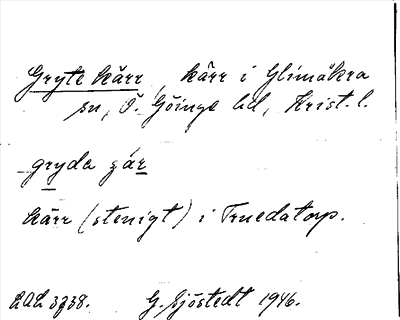 Gryte kärr, kärr i Glimåkra
sn, Ö. Göinge hd, Krist. l.
gryda gár
kärr (stenigt) i Truedatorp.
LAL 3738. G. Sjöstedt 1946.